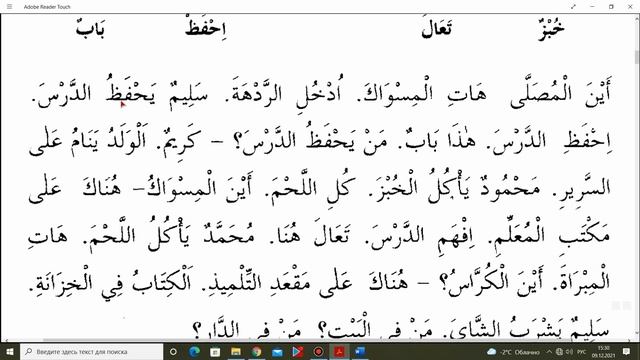 Adobe Reader Touch
خُبْزٌ تَعَالَ اِحْفَظْ بَابٌ
أَيْنَ الْمُصَلَّى هَاتِ الْمِسْوَاكَ. اُدْخُلِ الرَّدْهَةَ. سَلِيمٌ يَحْفَظُ الدَّرْسَ.
اِحْفَظِ الدَّرْسَ. هٰذَا بَابٌ. مَنْ يَحْفَظُ الدَّرْسَ؟ - كَرِيمٌ. اَلْوَلَدُ يَنَامُ عَلَى
السَّرِيرِ. مَحْمُودٌ يَأْكُلُ الْخُبْزَ. كُلِ اللَّحْمَ. أَيْنَ الْمِسْوَاكُ- هُنَاكَ عَلَى
مَكْتَبِ الْمُعَلِّمِ. اِفْهَمِ الدَّرْسَ. تَعَالَ هُنَا. مُحَمَّدٌ يَأْكُلُ اللَّحْمَ. هَاتِ
الْمِبْرَاةَ. أَيْنَ الْكُرَّاسُ؟ - هُنَاكَ عَلَى مَقْعَدِ التِّلْمِيذِ. اَلْكِتَابُ فِي الْخِزَانَةِ.
سَلِيمٌ يَشْرَبُ الشَّايَ. مَنْ فِي الْبَيْتِ؟ مَنْ فِي الدَّارِ؟
Введите здесь текст для поиска
-2°C Облачно
РУС
15:30
09.12.2021